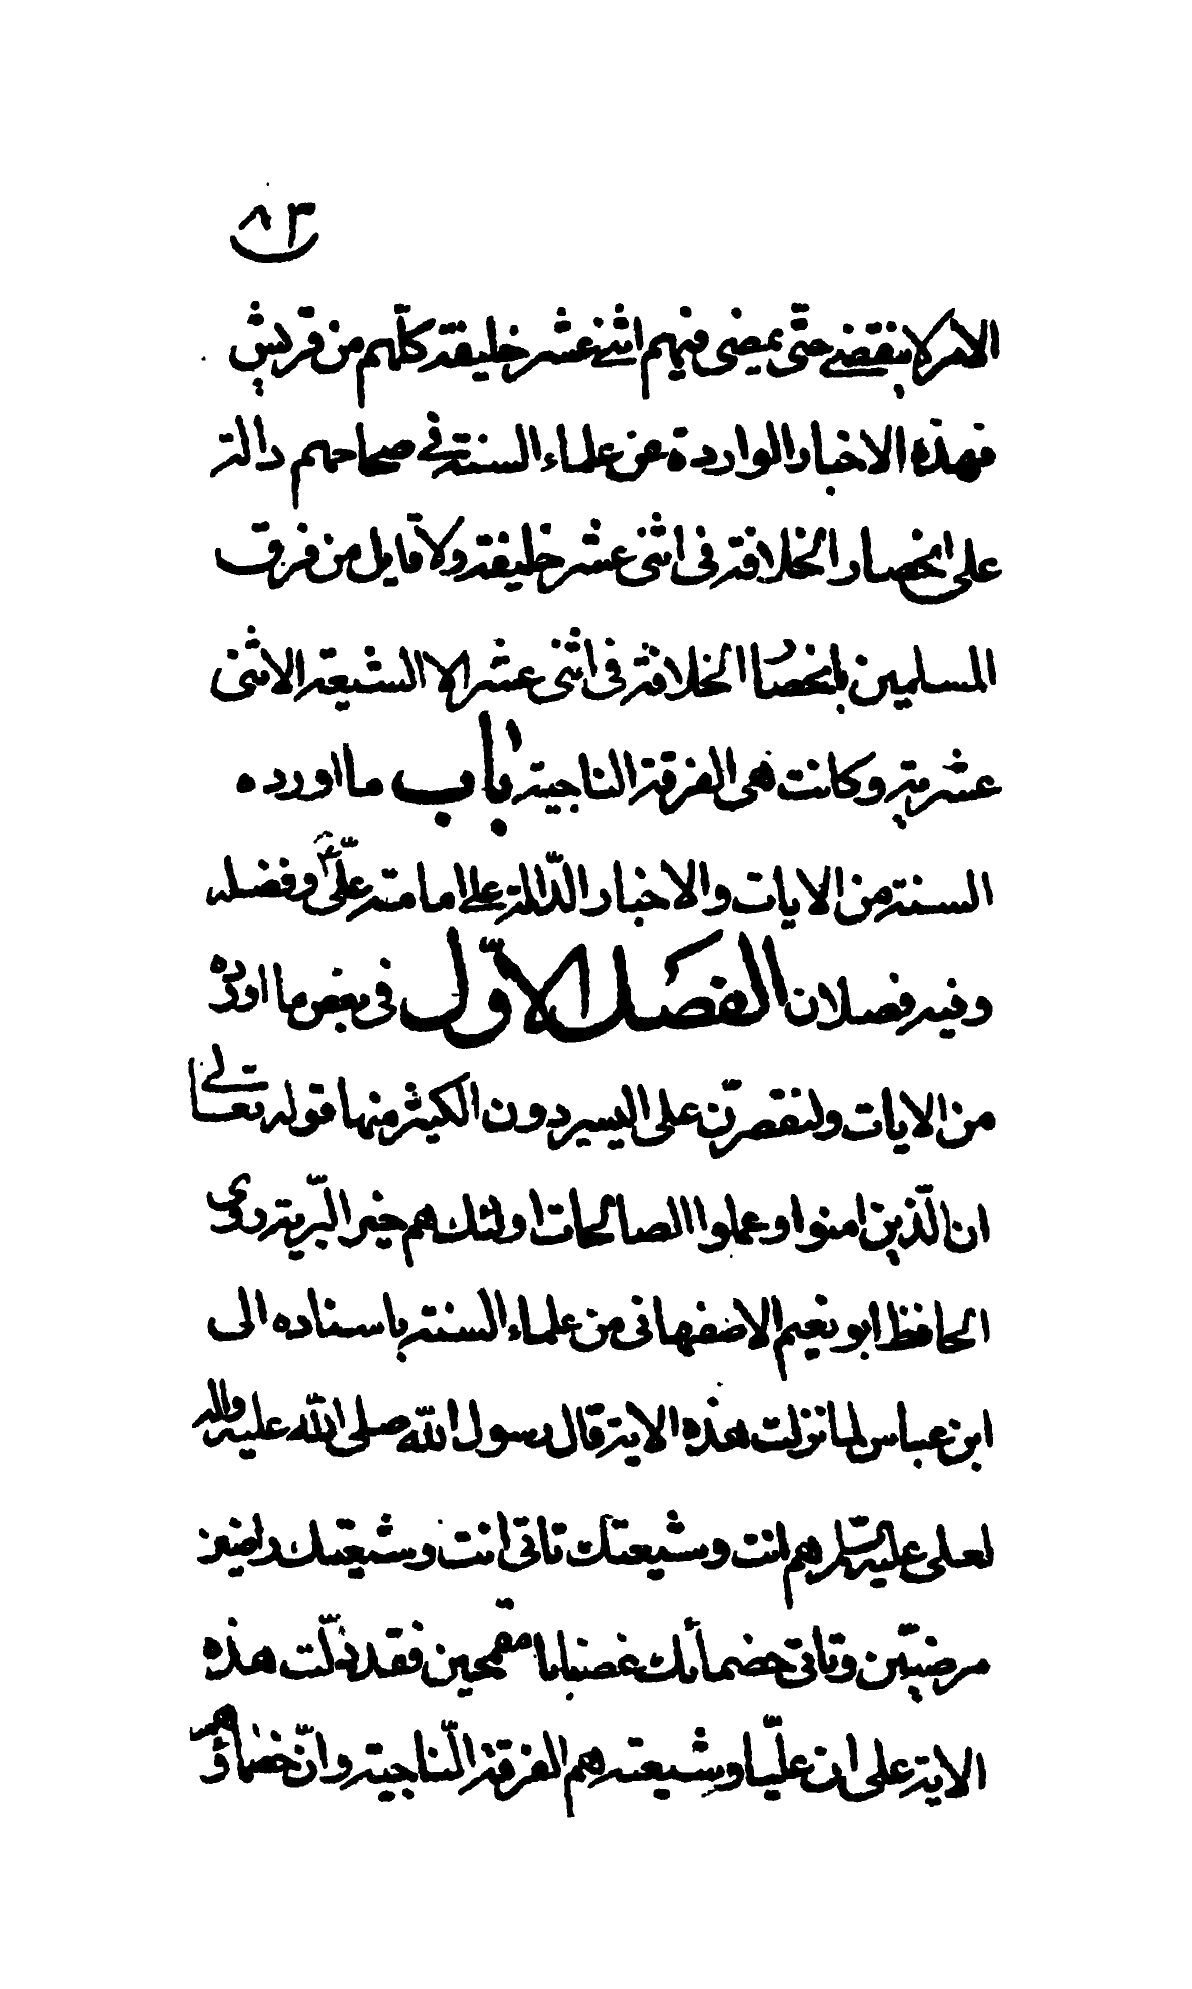 ٨٣
الامر لا ينقضي حتّى يمضى فيهم اثنى عشر خليفة كلّهم من قريش
فهذه الاخبار الواردة عن علماء السنة في صحاحهم دالة
على انحصار الخلافة فى اثنى عشر خليفة ولا قايل من فرق
المسلمين بانحصار الخلافة فى اثنى عشر الا الشيعة الاثنى
عشرية وكانت هى الفرقة الناجية باب ما اورده
السنة من الايات والاخبار الدّالة على امامة علىّ ع وفضله
وفيه فصلان الفصل الاوّل فى بعض ما اورده
من الايات ولنقصرنّ على اليسير دون الكثير منها قوله تعالى
ان الّذين امنوا وعملوا الصالحات اولئك هم خير البّرية روى
الحافظ ابو نعيم الاصفهانى من علماء السنة باسناده الى
ابن عباس لما نزلت هذه الاية قال رسول الله صلى الله عليه واله
لعلى عليه السّلم هم انت وشيعتك تاتى انت وشيعتك راضين
مرضيّين وتاتى خصمائك غضبانا مقمحين فقد دلّت هذه
الاية على ان عليّا وشيعته هم الفرقة النّاجية وانّ خصماؤهم